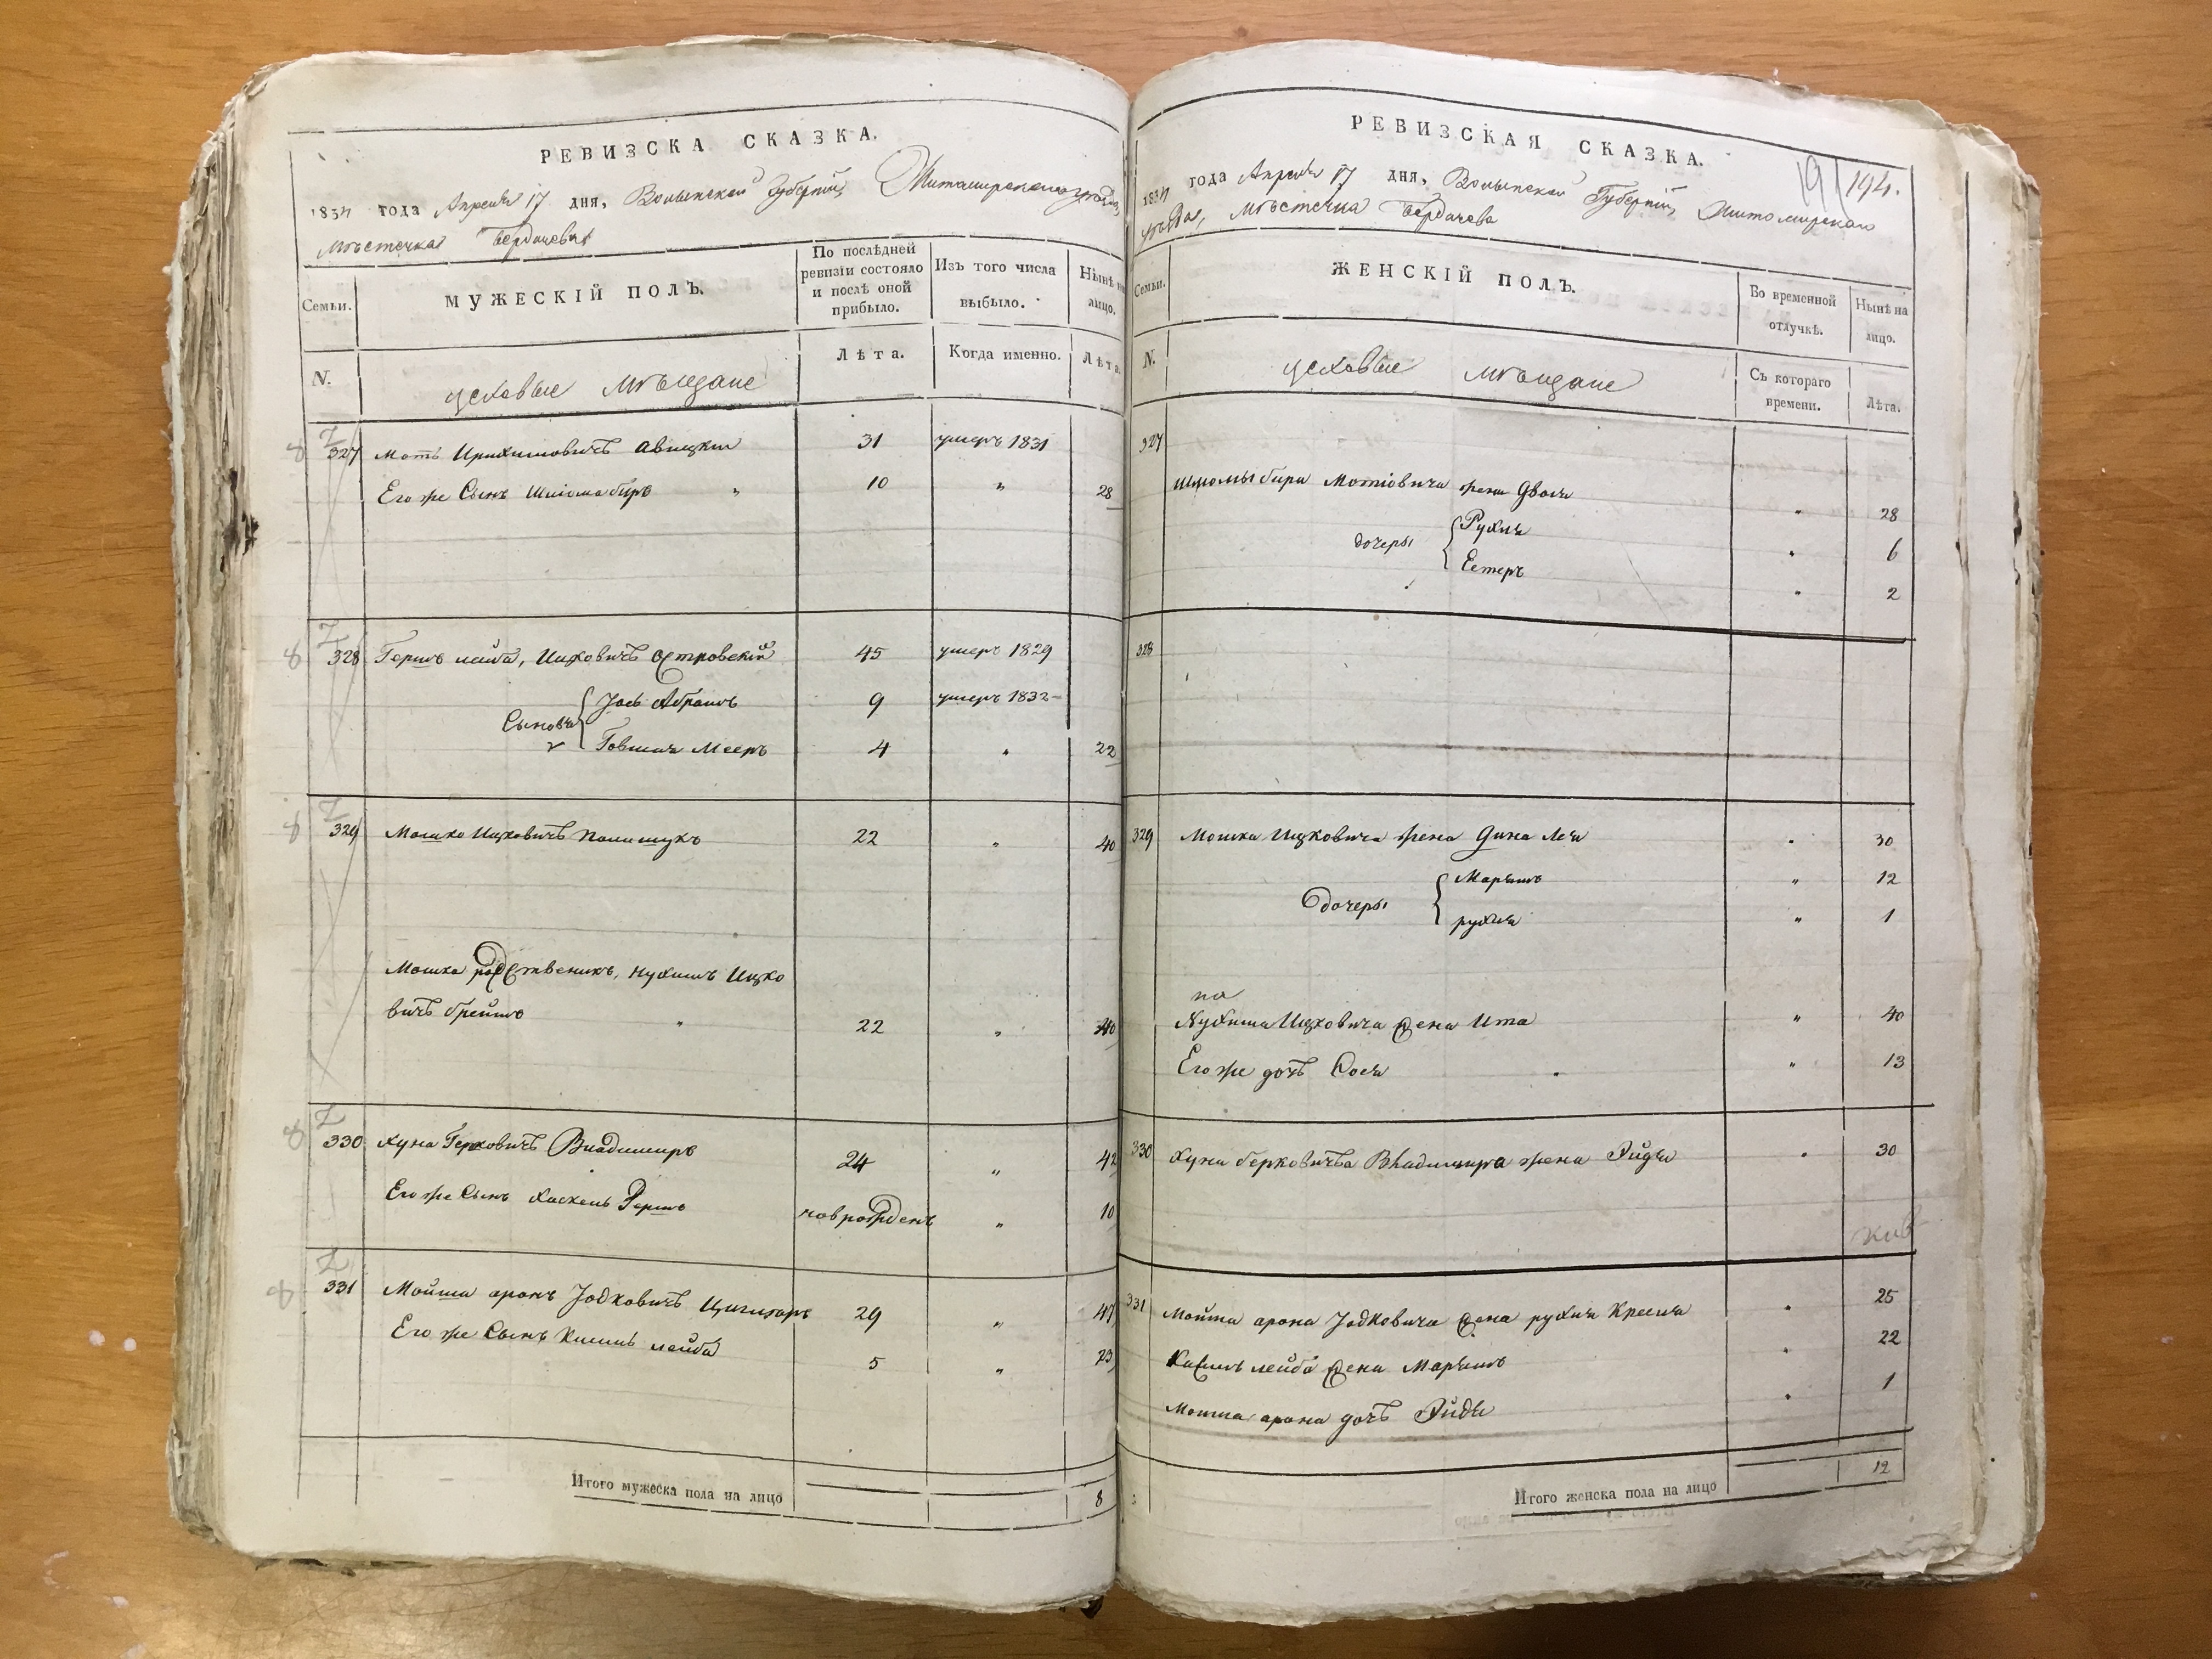 РЕВИЗСКА СКАЗКА.
1834 года Апреля 17 дня, Волынской Губерніи, Житомирскаго уезда,
мѣстечка Бердичева
Семьи.
МУЖЕСКІЙ ПОЛЪ.
По послѣдней
ревизіи состояло
и послѣ оной
прибыло.
Изъ того числа
выбыло.
Нынѣ на
лицо.
N.
цеховые мѣщане
Лѣта.
Когда именно.
Лѣта.
327 Моть Авицкій 31 умеръ 1831
Его же Сынъ Шлиома беръ „ 10 „ 28
328 Гершъ лейба, Ицковичъ Островскій 45 умеръ 1829
Сыновья { Іось Абрамъ 9 умеръ 1832
Говшия Мееръ 4 „ 22
329 Мошко Ицковичъ Полищукъ 22 „ 40
Мошка родственикъ, Нухимъ Ицко
вичъ 22 „ 40
330 Хуна Берковичъ Владимиръ 24 „ 42
Его же Сынъ Хаскель Гершъ новрожденъ „ 10
331 Мойша аронъ Іодковичъ 29 „ 47
Его же Сынъ лейба 5 „ 23
Итого мужеска пола на лицо 8
РЕВИЗСКАЯ СКАЗКА.
191 194.
1834 года Апреля 17 дня, Волынской Губерніи, Житомирскаго
уезда, мѣстечка Бердичева
Семьи.
ЖЕНСКІЙ ПОЛЪ.
Во временной
отлучкѣ.
Нынѣ на
лицо.
N.
цеховые мѣщане
Съ котораго
времени.
Лѣта.
327
Шлиомы бера Мотіовича жена Двося „ 28
дочеры { Рухля „ 6
Естеръ „ 2
328
329 Мошка Ицковича жена Дина Лея „ 30
дочеры { Марямъ „ 12
рухля „ 1
на
Нухима Ицковича жена Ита „ 40
Его же дочъ Сося „ 13
330 Хуни берковичѣа Владимира жена Эйдя „ 30
331 Мойша арона Іодковича жена рухля Крейня „ 25
лейба жена Марямъ „ 22
Мойша арона дочъ Эйдя „ 1
Итого женска пола на лицо 12